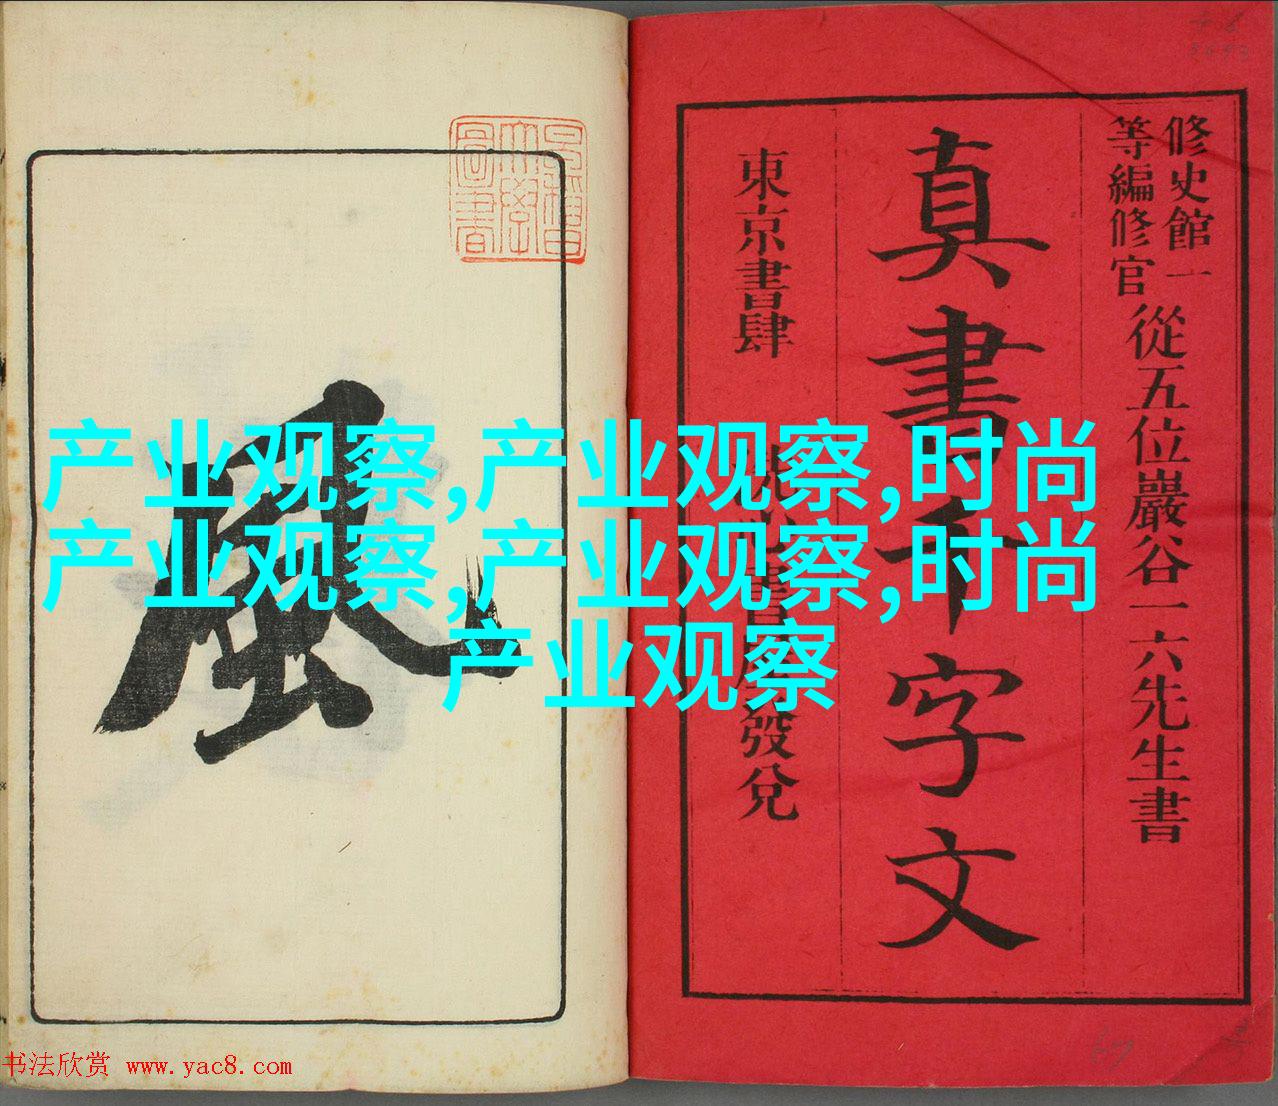 修史館一
等編修官
從五位巖谷一六先生書
真書千字文
東京書肆
發兌
風
早稲田
大學
圖書
产业观察,产业观察,时尚
产业观察,产业观察,时尚
产业观察
书法欣赏 www.yac8.com